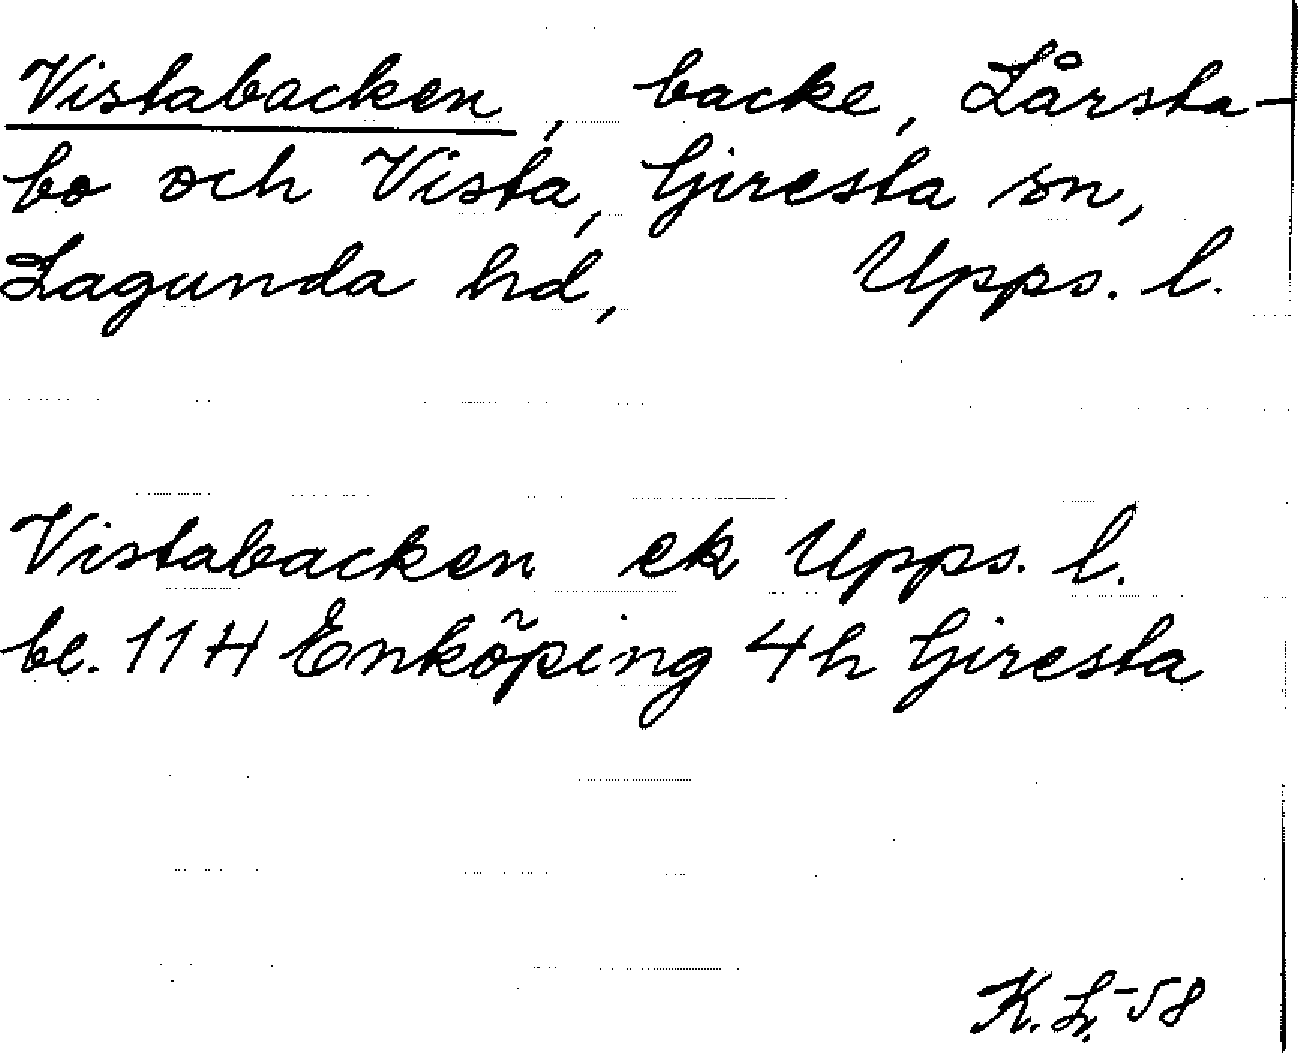 Vistabacken, backe, Lårsta-
bo och Vista, Giresta sn,
Lagunda hd, Upps. l.
Vistabacken ek Upps. l.
be. 11 H Enköping 4h Giresta
K. L. -58